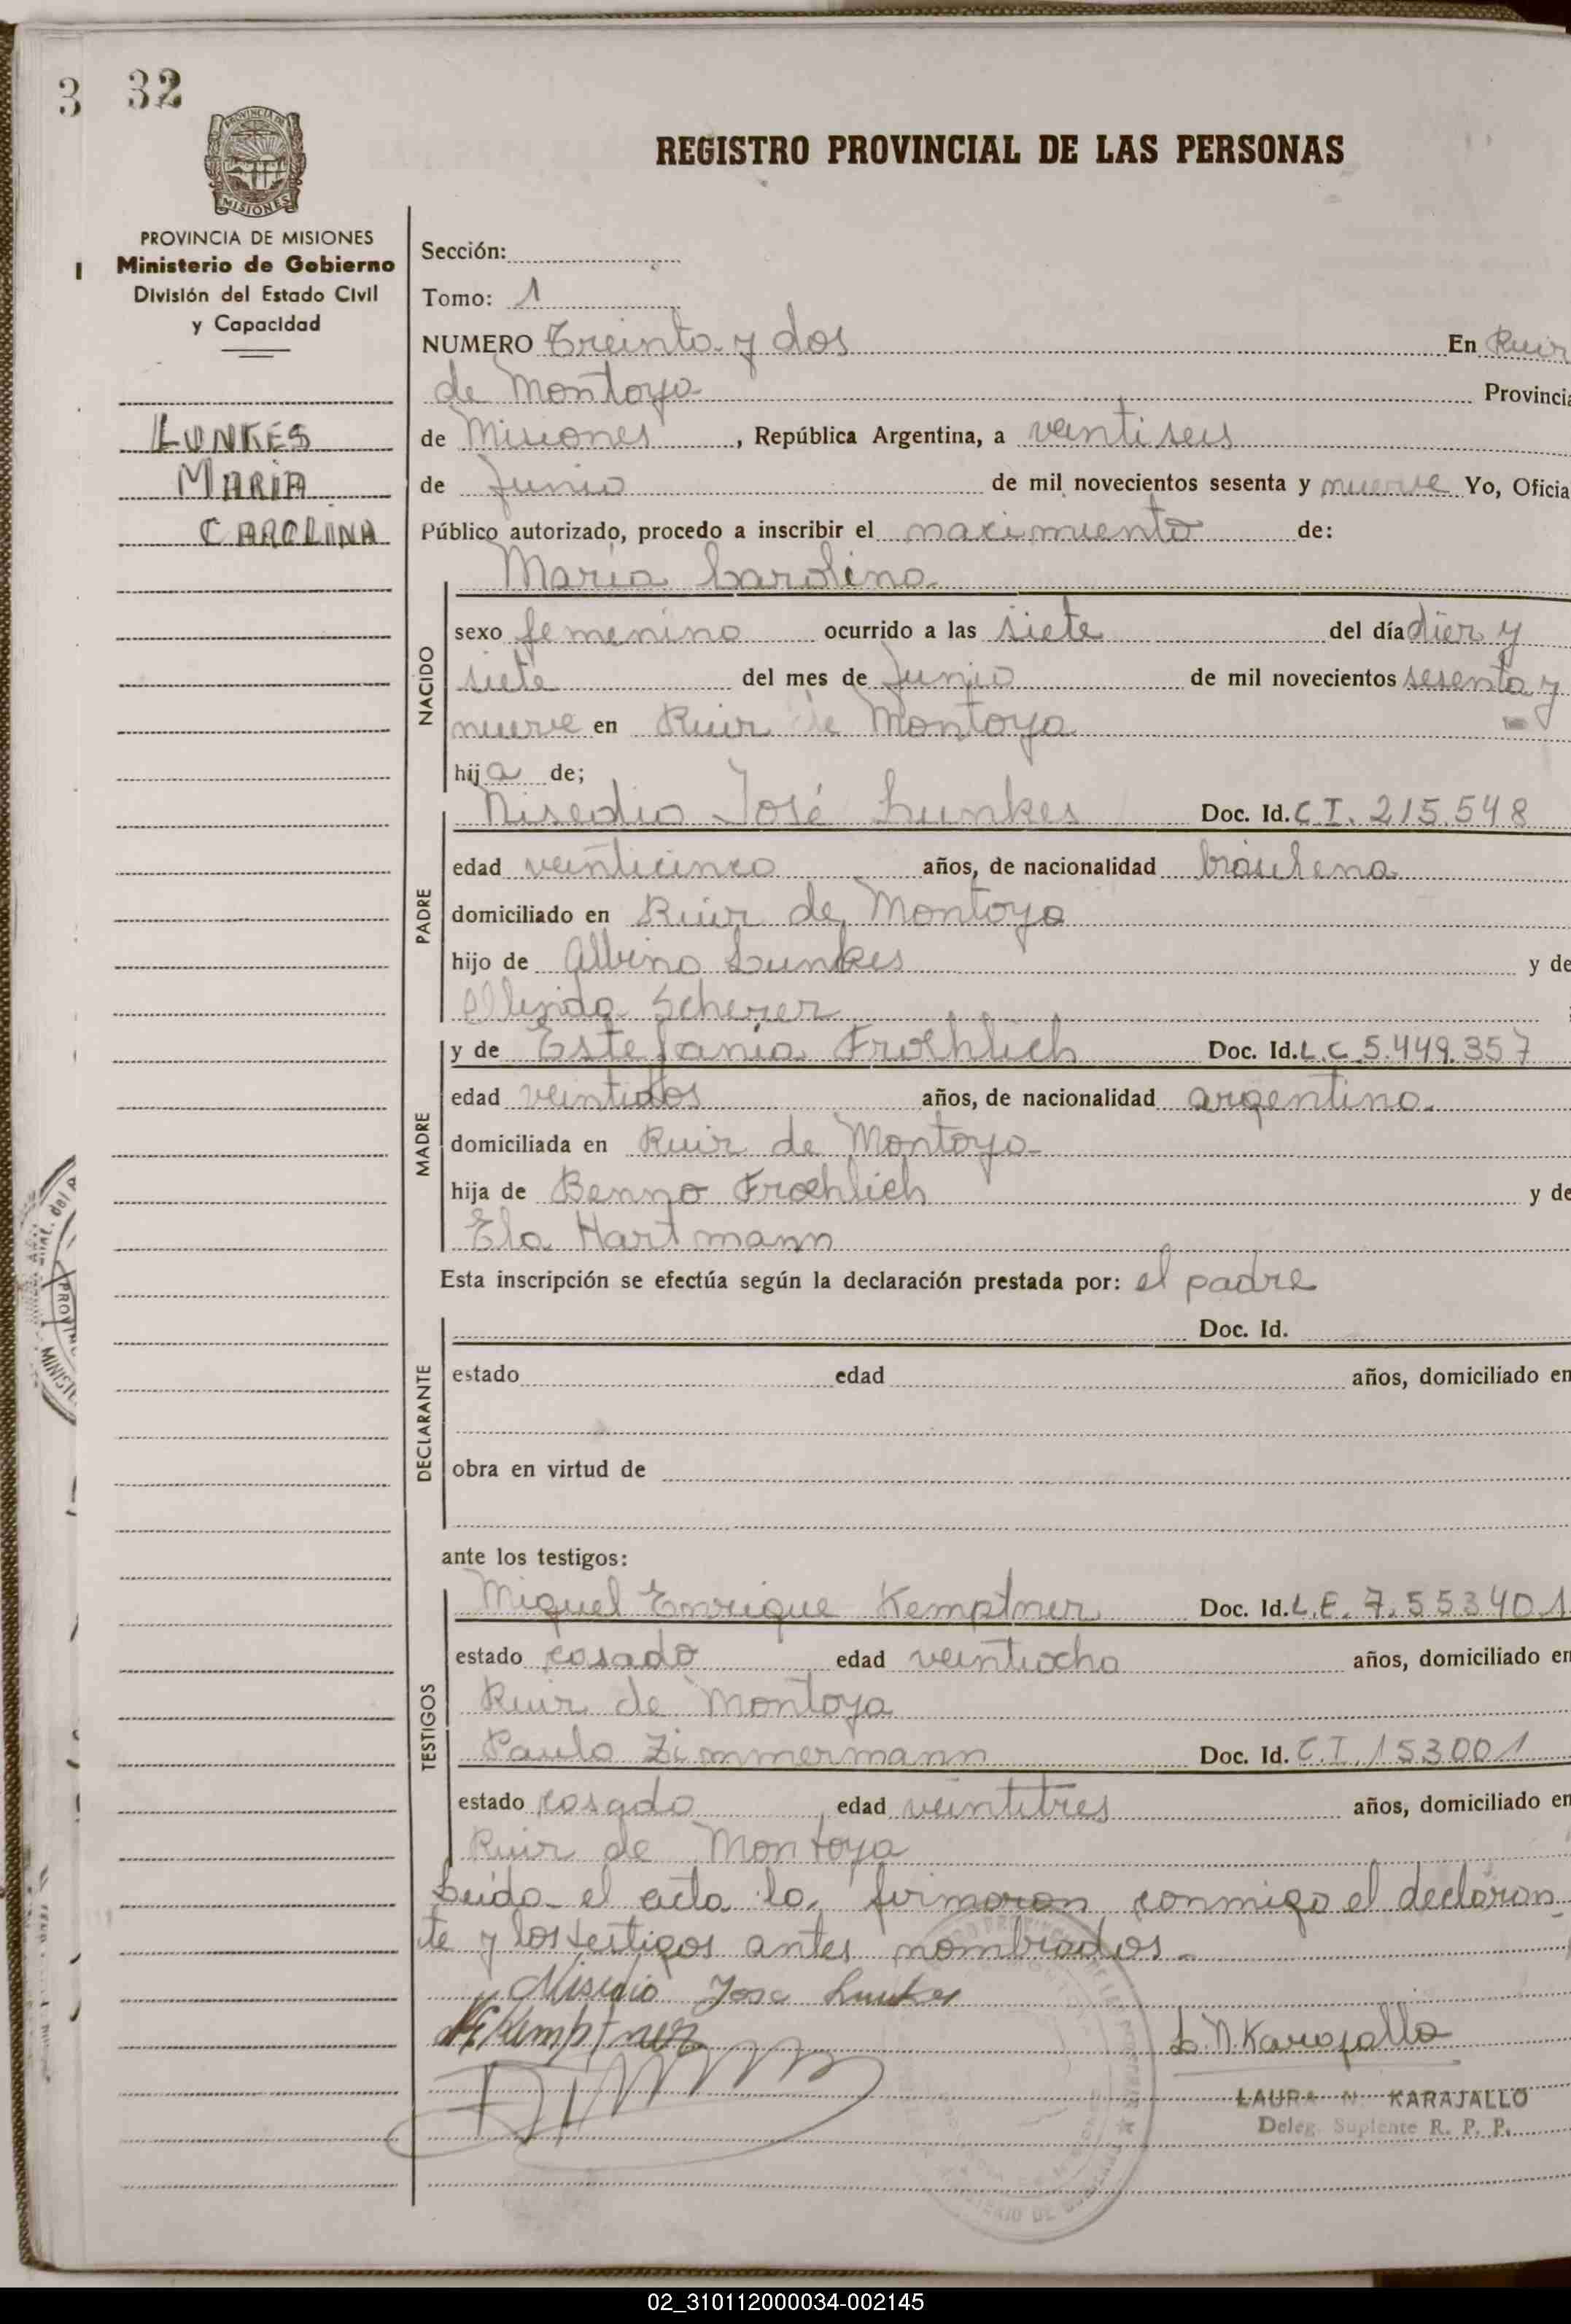 3 32
REGISTRO PROVINCIAL DE LAS PERSONAS
PROVINCIA DE MISIONES
MISIONES
PROVINCIA DE MISIONES
Ministerio de Gobierno
División del Estado Civil
y Capacidad
LUNKES
MARIA
CAROLINA
Sección:
Tomo: 1
NUMERO Treinta y dos En Ruiz
de Montoya Provincia
de Misiones, República Argentina, a veintiseis
de Junio de mil novecientos sesenta y nueve Yo, Oficia
Público autorizado, procedo a inscribir el nacimiento de:
María Carolina
NACIDO
sexo femenino ocurrido a las siete del día diez y
siete del mes de Junio de mil novecientos sesenta y
nueve en Ruiz de Montoya
hija de;
PADRE
Nisedio José Lunkes Doc. Id. C I. 215.548
edad veinticinco años, de nacionalidad brasilena
domiciliado en Ruiz de Montoya
hijo de Albino Lunkes y de
Scherer
MADRE
y de Estefania Froehlich Doc. Id. L C 5.449.357
edad veintidos años, de nacionalidad argentina
domiciliada en Ruiz de Montoya
hija de Benno Froehlich y de
Ela Hartmann
Esta inscripción se efectúa según la declaración prestada por: el padre
DECLARANTE
Doc. Id.
estado edad años, domiciliado en
obra en virtud de
ante los testigos:
TESTIGOS
Miguel Enrique Kemptner Doc. Id. L.E. 7.553401
estado casado edad veintiocho años, domiciliado en
Ruiz de Montoya
Paulo Zimmermann Doc. Id. C.I. 153001
estado casado edad veintitres años, domiciliado en
Ruiz de Montoya
Leida el acta la firmaron conmigo el declaran
te y los testigos antes nombrados.
Nisedio Jose Lunkes
Kemptner
L. N. Karajallo
LAURA N. KARAJALLO
Deleg. Suplente R. P. P.
02_310112000034-002145